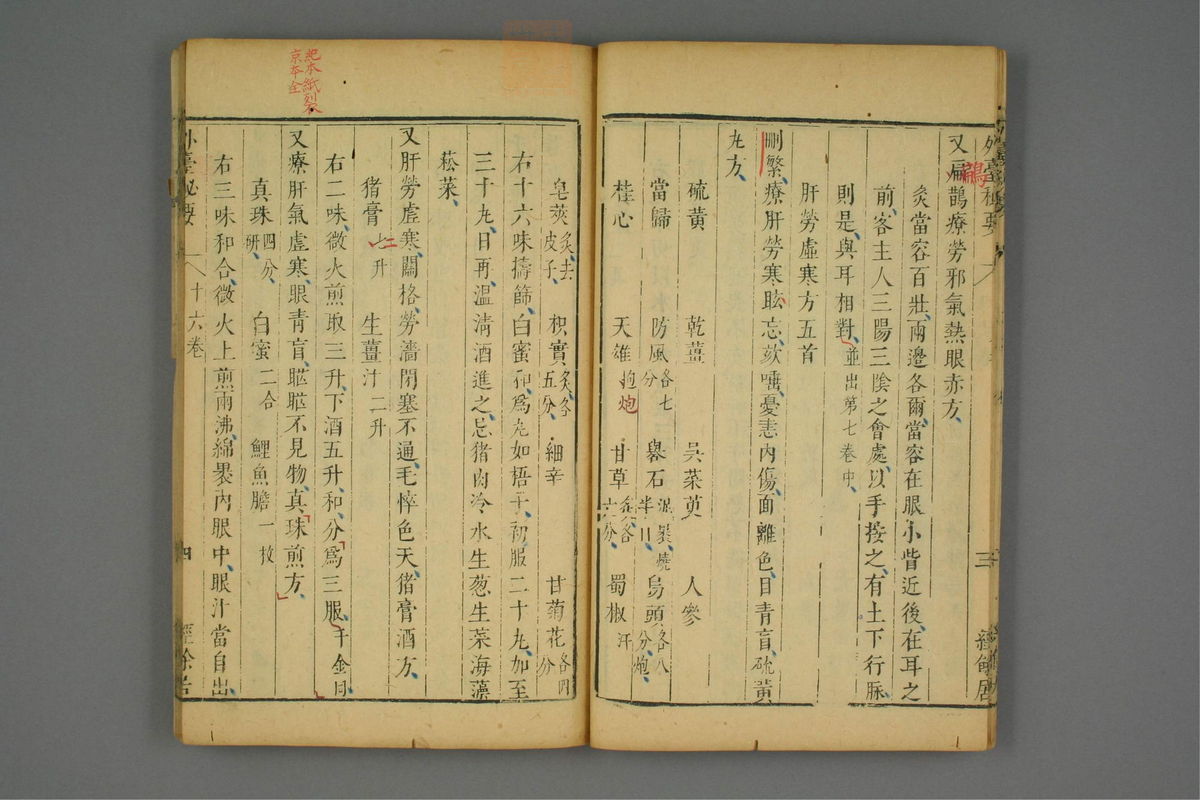 外臺秘要
三
經餘居
又扁鵲療勞邪氣熱眼赤方
鵲
灸當容百壯兩邊各爾當容在眼小眥近後在耳之
前客主人三陽三陰之會處以手按之有上下行脉
則是與耳相對並出第七卷中
肝勞虛寒方五首
刪繁療肝勞寒眩忘欬唾憂恚內傷面離色目青盲硫黃
丸方
硫黃 乾薑 吳茱萸 人參
當歸 防風各七分 礜石泥裹燒半日 烏頭各八分炮
桂心 天雄炮 甘草炙各六分 蜀椒汗
炮
皂莢炙去皮子 枳實炙各五分 細辛 甘菊花各四分
右十六味擣篩白蜜和為丸如梧子初服二十丸加至
三十丸日再溫清酒進之忌猪肉冷水生葱生菜海藻
菘菜
又肝勞虛寒關格勞濇閉塞不通毛悴色夭猪膏酒方
猪膏 升 生薑汁二升
二
右二味微火煎取三升下酒五升和分為三服千金同
又療肝氣虛寒眼青盲䀮䀮不見物真珠煎方
真珠四分研 白蜜二合 鯉魚膽一枚
右三味和合微火上煎兩沸綿裹內眼中眼汁當自出
外臺秘要
十六卷
四
經餘居
紙裂
京本全